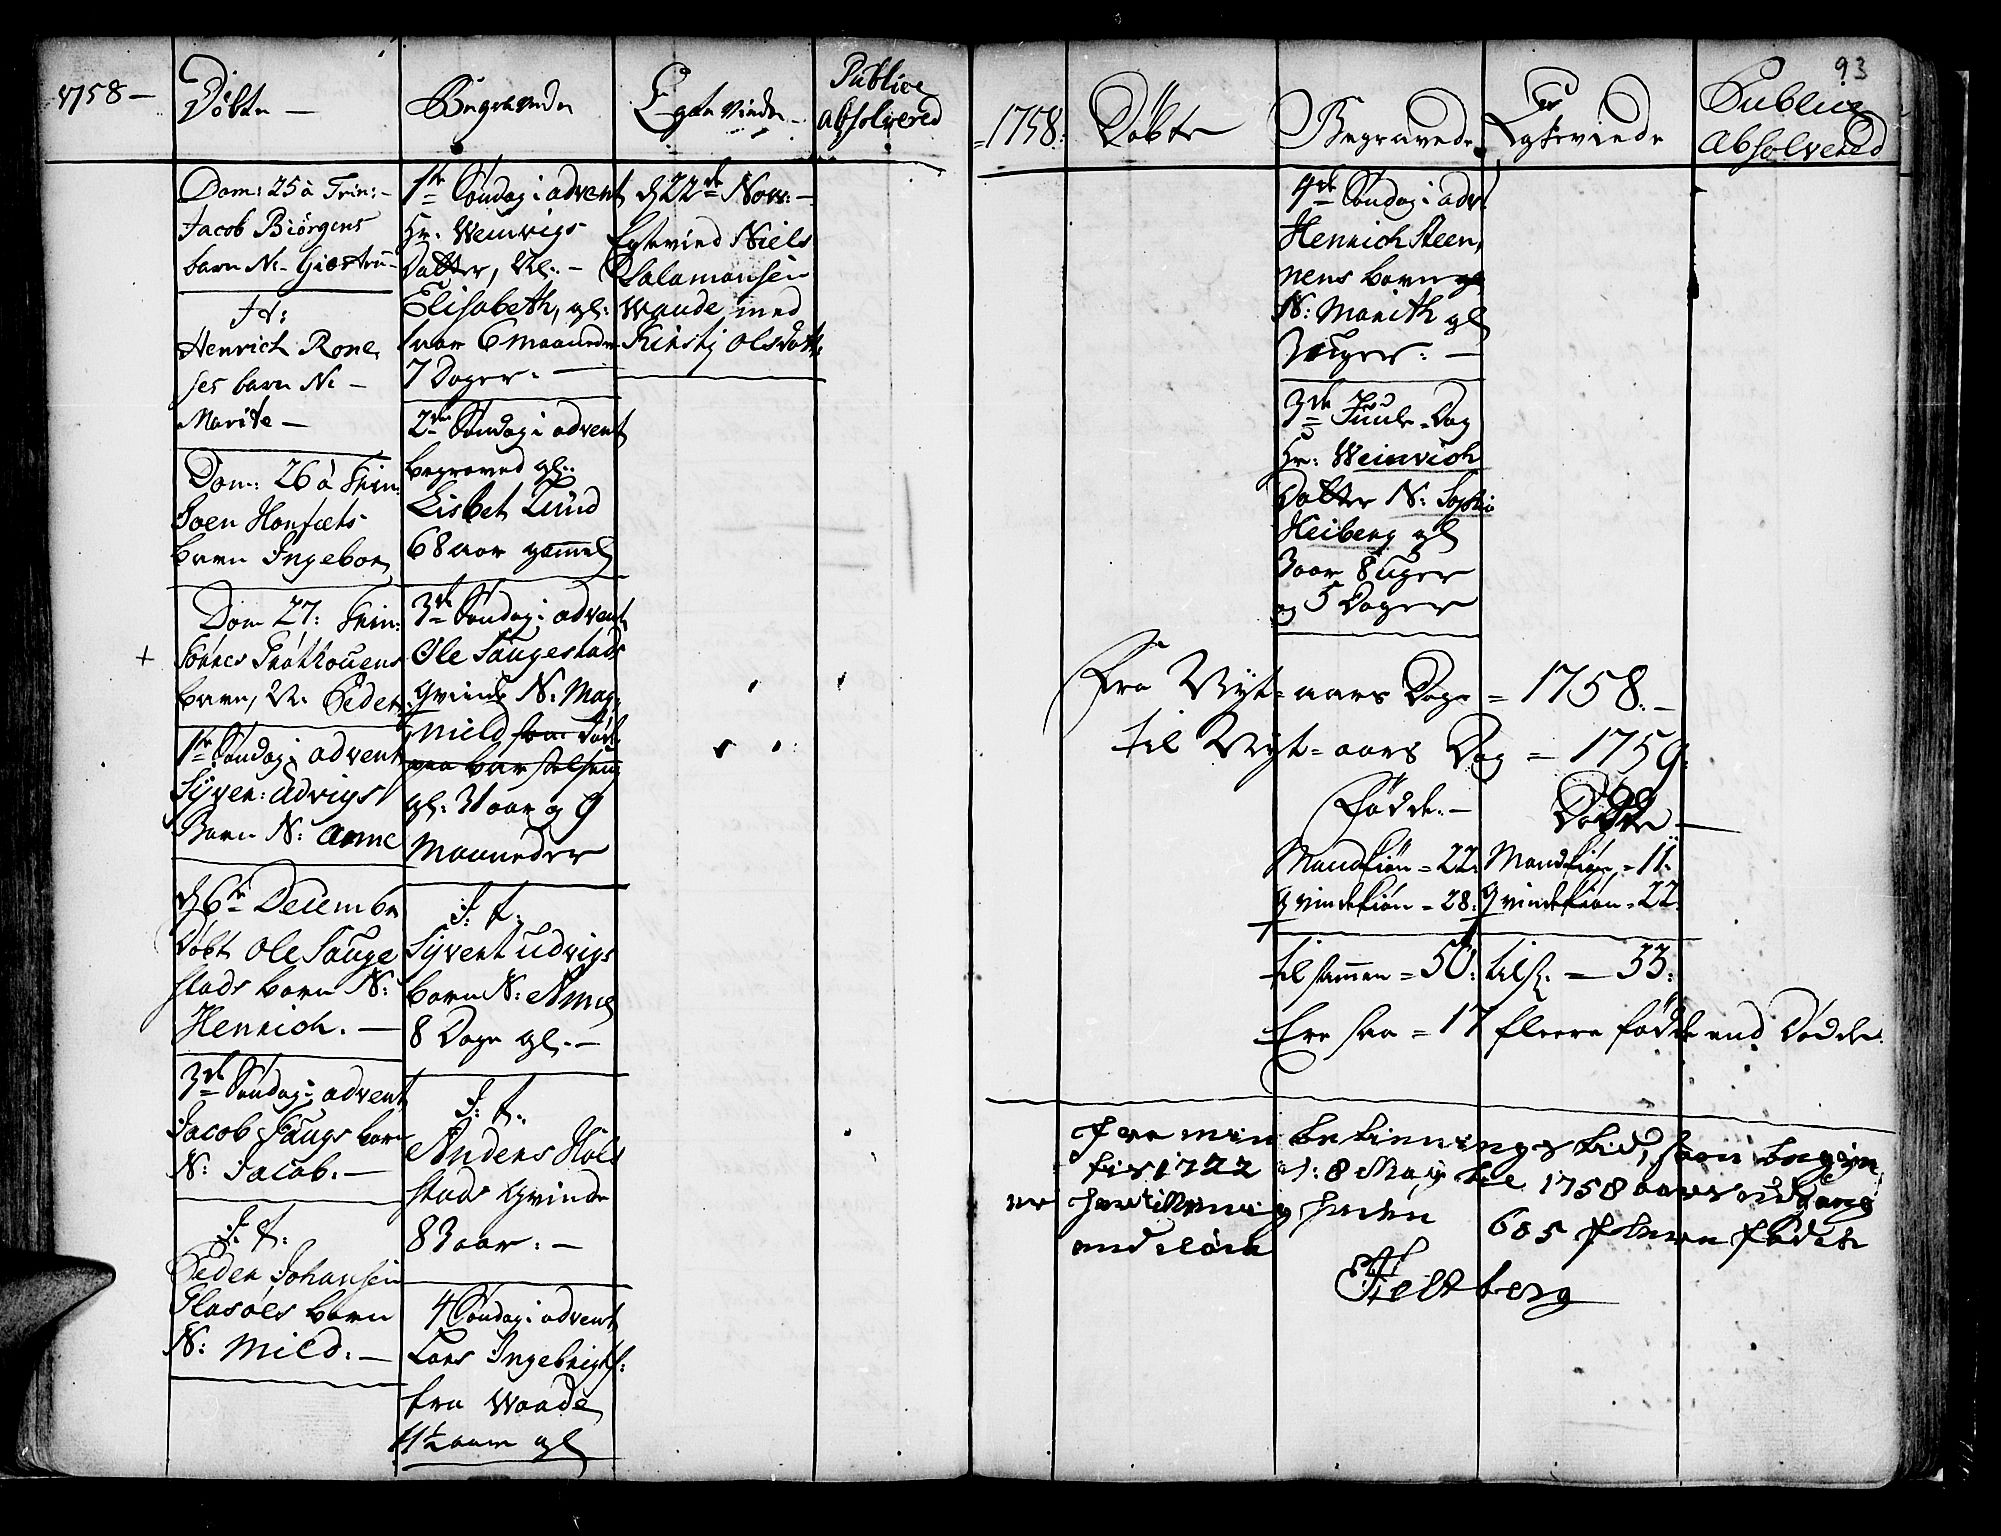 1758 –
Döbte –
Begravede
Egtevinde –
Publice
absolvered
Dom: 25 à Trin: –
Jacob Biörgens
barn N:
Id:
Henrich Rone,
ses barn N:
Marite –
Dom: 26 à Trin:
Joen
barn Ingebor
Dom 27: Trin:
+
barn, N: Peder
1te Søndag i advent
Syver: Udvigs
Barn N: Anne
d 6te Decembr
Döbt Ole Sauge
stads barn N:
Henrich. –
3de Søndag i advent
Jacob Haugs barn
N: Jacob. –
I: d:
Peder Johansen
barn
N: Mild. –
1te Søndag i advent
Hr: Weinvigs
Datter, N: –
Elisabeth, gl:
1 aar 6 maaneder
7 Dager. –
2de Søndag i advent
begraved gl:
Lisbet Lund
68 aar gammel
3de Søndag i advent
Ole Saugestads
Qvinde N: Mag,
nild som död
paa barselseng
gl: 31 aar og 9
Maaneder
I: d:
Syvert Udvigs
barn N: Anne
8 Dage gl. –
I: d:
Anders Hols
stads Qvinde
83 aar. –
4 Søndag i advent
Lars Ingebrights:
fra Waade
4½ aar gl
d 22de Novr: –
Egtevied Niels
Salamonsen
Waade, med
Kirstj Olsdatt:
93
1758:
Döbte
Begravede
Egtevinde
Publice
absolvered
4de Søndag i adv:
Henrich Steen,
nens barn gl
N: Marith gl
3 uger: –
3de Juule-Dag
Hr: Weinvich
Datter N: Sophia
Heiberg gl
3 aar 8 uger
og 5 Dager
Fra Nyt-aars Dage = 1758. –
til Nyt-aars Dag = 1759:
Födde. –
Döde –
Mandkiön = 22:
Mandkiön = 11:
Qvindekiön = 28:
Qvindekiön = 22:
tilsammen = 50:
tils. = 33:
Ere saa = 17 fleere födde end Dödde:
Fra min betienings tid, som begyn,
tes 1722 d: 8 Maij til 1758 aars udgang
er
605 fleere födde
end döde
Feltberg